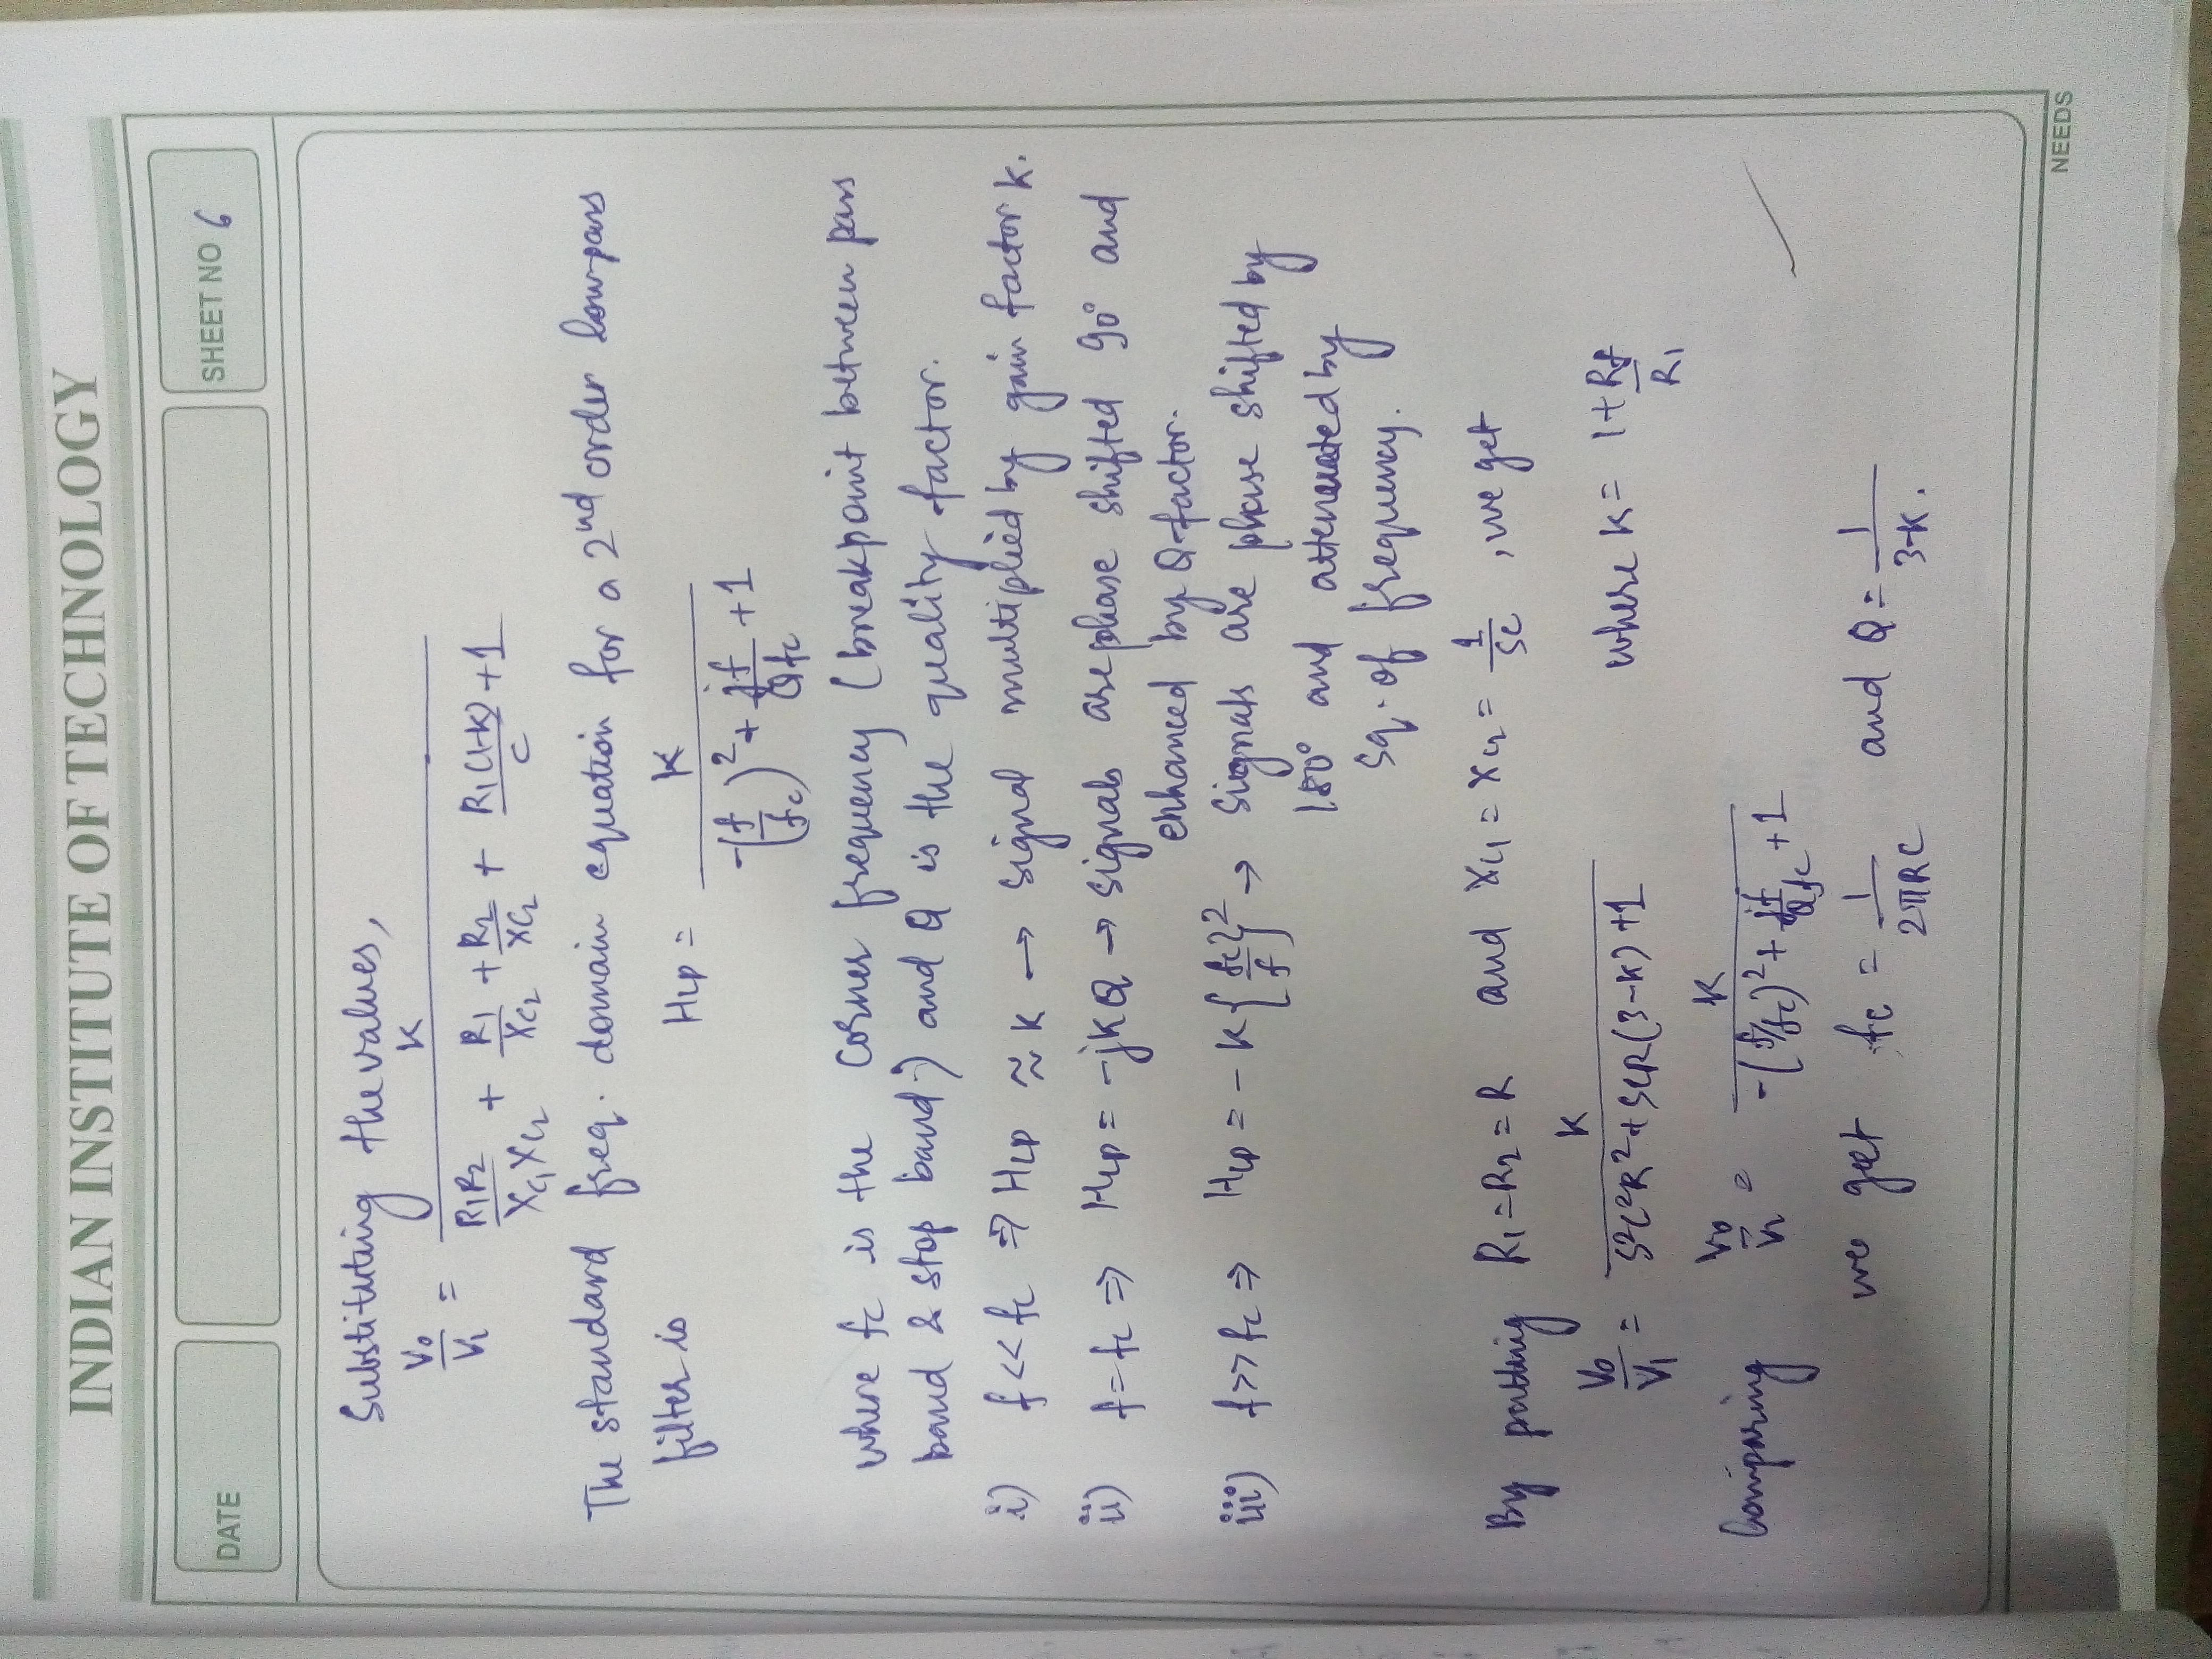 INDIAN INSTITUTE OF TECHNOLOGY
DATE
SHEET NO 6
Substituting the values,
V₀/V₁ = K / (R₁R₂/(X_C₁X_C₂) + R₁/X_C₂ + R₂/X_C₂ + R₁(1-K)/C + 1)
The standard freq. domain equation for a 2nd order low pass
filter is H_LP = K / (-(f/f_c)² + jf/(Qf_c) + 1)
where f_c is the corner frequency (breakpoint between pass
band & stop band.) and Q is the quality factor.
i) f << f_c ⇒ H_LP ≈ K → signal multiplied by gain factor K.
ii) f = f_c ⇒ H_LP = -jKQ → signals are phase shifted 90° and
enhanced by Q-factor.
iii) f >> f_c ⇒ H_LP = -K{f_c/f}² → signals are phase shifted by
180° and attenuated by
sq. of frequency.
By putting R₁ = R₂ = R and X_C₁ = X_C₂ = 1/SC , we get
V₀/V₁ = K / (S²C²R² + SCR(3-K) + 1) where K = 1 + Rf/R₁
Comparing V₀/V₁ = K / (-(f/f_c)² + jf/(Qf_c) + 1)
we get f_c = 1/(2πRC) and Q = 1/(3-K).
NEEDS